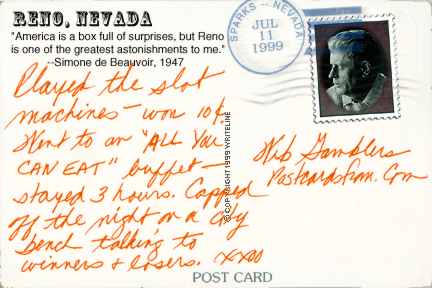 RENO, NEVADA
"America is a box full of surprises, but Reno
is one of the greatest astonishments to me."
--Simone de Beauvoir, 1947
SPARKS - NEVADA
JUL
11
1999
Played the slot
machines - won 10¢.
Went to an "ALL YOU
CAN EAT" buffet -
stayed 3 hours. Capped
off the night on a city
bench talking to
winners & losers. xxoo
© COPYRIGHT 1999 WRITELINE
Web Gamblers
Postcardsfrom.Com
POST CARD